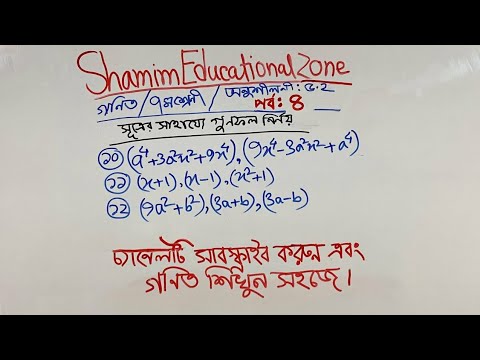 Shamim Educational Zone
গণিত/৭ম শ্রেণী/অনুশীলনী: ৫.২
পর্ব: ৪
সূত্রের সাহায্যে গুণফল নির্ণয়
২০ (a⁴+3a²x²+9x⁴), (9x⁴-3a²x²+a⁴)
২১ (x+1), (x-1), (x²+1)
২২ (9a²+b²), (3a+b), (3a-b)
চ্যানেলটি সাবস্ক্রাইব করুন এবং
গণিত শিখুন সহজে।